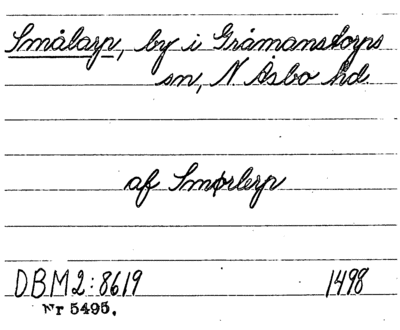 Smålarp, by i Gråmanstorps
sn, N. Åsbo hd.
af Smørlerp
DBM2:8619 1498
Nr 5495.